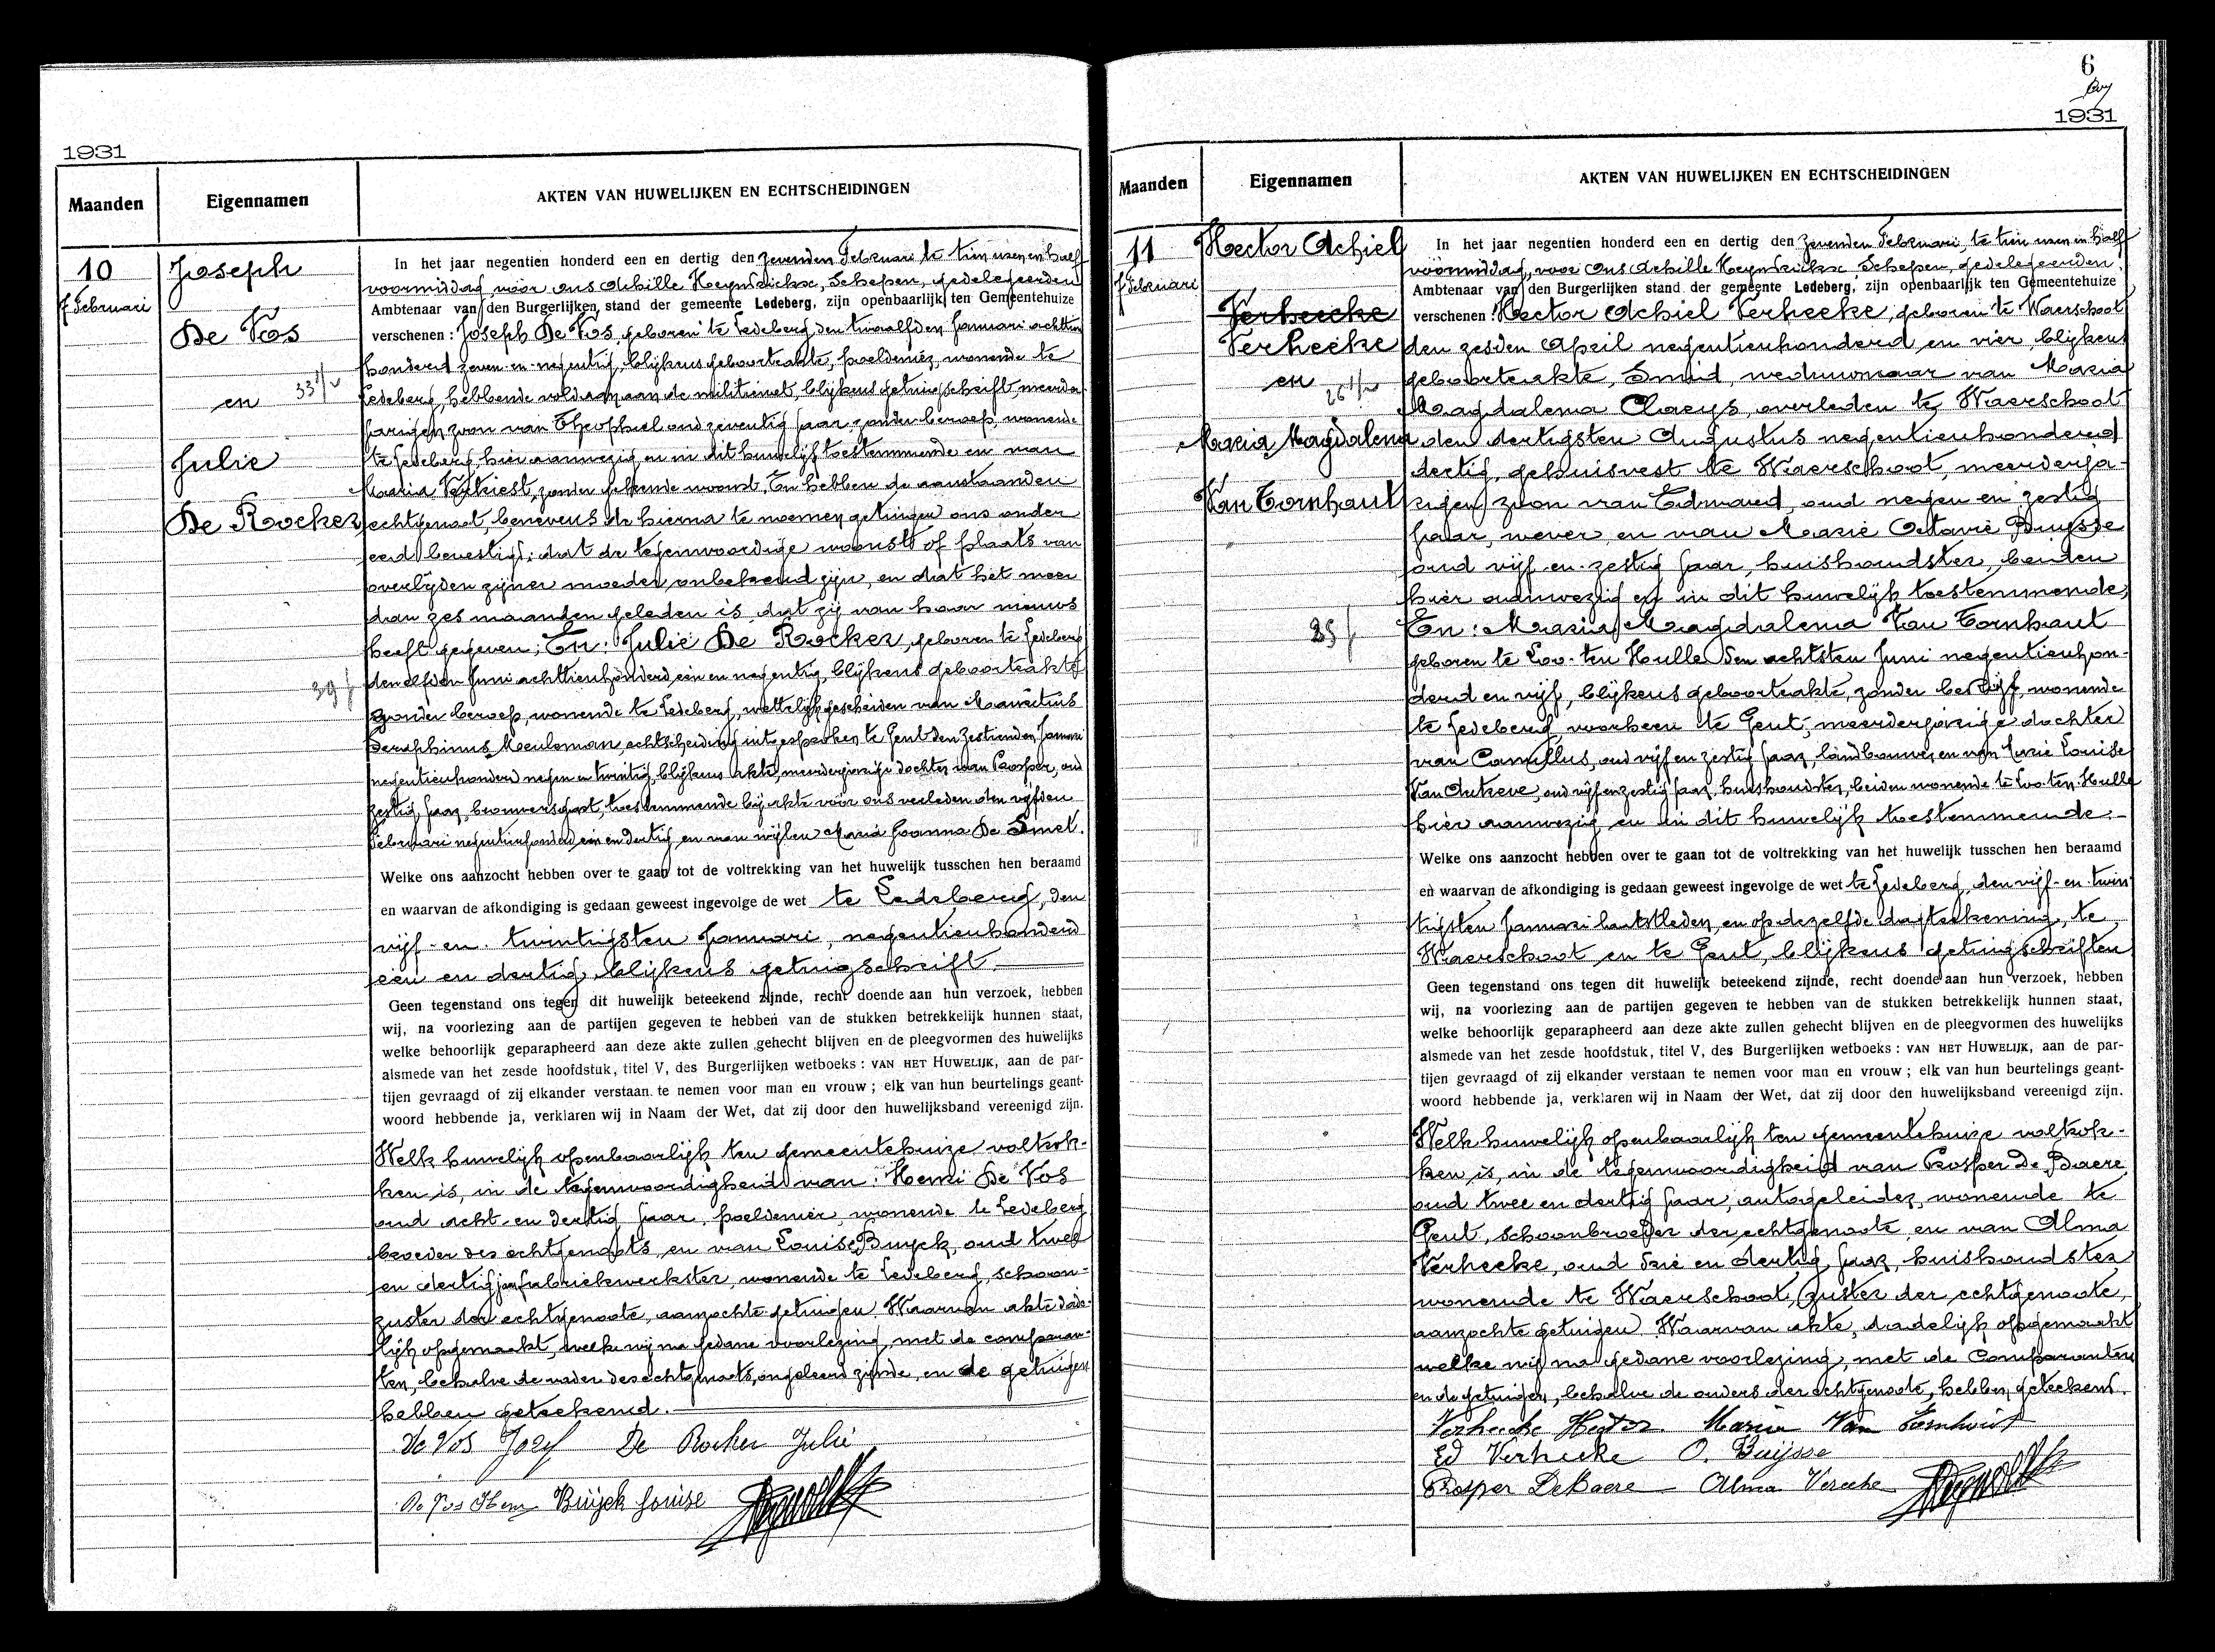 1931
Maanden
Eigennamen
AKTEN VAN HUWELIJKEN EN ECHTSCHEIDINGEN
10
7 Februari
Joseph
De Vos
en
33 j v
Julie
De Rocker
39 j
In het jaar negentien honderd een en dertig den zevenden Februari te tien uren en half
voormiddag voor ons Achille Heyndrickx, Schepen, gedelegeerden
Ambtenaar van den Burgerlijken stand der gemeente Ledeberg, zijn openbaarlijk ten Gemeentehuize
verschenen : Joseph De Vos, geboren te Ledeberg den twaalfden Januari achttien
honderd zeven-en-negentig, blijkens geboorteakte, poeldenier, wonende te
Ledeberg, hebbende voldaan aan de militiewet, blijkens getuigschrift, meerder
jarigen zoon van Theophiel oud zeventig jaar, zonder beroep, wonende
te Ledeberg, hier aanwezig en in dit huwelijk toestemmende en van
Maria Verkiest, zonder gekende woonst. En hebben de aanstaanden
echtgenoot, benevens de hierna te noemen getuigen ons onder
eed bevestigd: dat de tegenwoordige woonst of plaats van
overlijden zijner moeder onbekend zijn, en dat het meer
dan zes maanden geleden is dat zij van haar nieuws
heeft gegeven; En: Julie De Rocker, geboren te Ledeberg
den elfden Juni achttienhonderd een en negentig, blijkens geboorteakte
zonder beroep, wonende te Ledeberg, wettelijk gescheiden van Mauritius
Seraphinus Meuleman, echtscheiding uitgesproken te Gent den zestienden Januari
negentienhonderd negen en twintig, blijkens akte, meerderjarige dochter van Prosper, oud
zestig jaar, brouwersgast, toestemmende bij akte vóór ons verleden den vijfden
Februari negentienhonderd een en dertig, en van wijlen Maria Joanna De Smet.
Welke ons aanzocht hebben over te gaan tot de voltrekking van het huwelijk tusschen hen beraamd
en waarvan de afkondiging is gedaan geweest ingevolge de wet te Ledeberg, den
vijf-en-twintigsten Januari, negentienhonderd
een en dertig, blijkens getuigschrift.
Geen tegenstand ons tegen dit huwelijk beteekend zijnde, recht doende aan hun verzoek, hebben
wij, na voorlezing aan de partijen gegeven te hebben van de stukken betrekkelijk hunnen staat,
welke behoorlijk geparapheerd aan deze akte zullen gehecht blijven en de pleegvormen des huwelijks
alsmede van het zesde hoofdstuk, titel V, des Burgerlijken wetboeks : VAN HET HUWELIJK, aan de par-
tijen gevraagd of zij elkander verstaan te nemen voor man en vrouw ; elk van hun beurtelings geant-
woord hebbende ja, verklaren wij in Naam der Wet, dat zij door den huwelijksband vereenigd zijn.
Welk huwelijk openbaarlijk ten gemeentehuize voltrok-
ken is, in de tegenwoordigheid van: Henri De Vos
oud acht-en dertig jaar, poeldenier, wonende te Ledeberg
broeder des echtgenoots, en van Louise Buyck, oud twee
en dertig jaar fabriekwerkster, wonende te Ledeberg, schoon-
zuster der echtgenoote, aanzochte getuigen. Waarvan akte dade-
lijk opgemaakt, welke wij na gedane voorlezing, met de comparan-
ten, behalve de vader des echtgenoots, ongeleerd zijnde, en de getuigen
hebben geteekend.
De Vos Jozef De Rocker Julie
De Vos Henri Buijck Louise
6
1931
Maanden
Eigennamen
AKTEN VAN HUWELIJKEN EN ECHTSCHEIDINGEN
11
7 Februari
Hector Achiel
Verheecke
Verhecke
en
26 j w
Maria Magdalena
Van Tornhaut
25 j
In het jaar negentien honderd een en dertig den zevenden Februari te tien uren en half
voormiddag, voor ons Achille Heyndrickx, Schepen, gedelegeerden
Ambtenaar van den Burgerlijken stand der gemeente Ledeberg, zijn openbaarlijk ten Gemeentehuize
verschenen : Hector Achiel Verhecke, geboren te Waerschoot
den zesden April negentienhonderd en vier blijkens
geboorteakte, Smid, weduwnaar van Maria
Magdalena Claeys, overleden te Waerschoot
den dertigsten Augustus negentienhonderd
dertig, gehuisvest te Waerschoot, meerderja-
rigen zoon van Edmond, oud negen en zestig
jaar, wever, en van Marie Octavie Buysse
oud vijf-en-zestig jaar, huishoudster, beiden
hier aanwezig en in dit huwelijk toestemmende;
En: Maria Magdalena Van Tornhaut
geboren te Loo-ten Hulle den achtsten Juni negentienhon-
derd en vijf, blijkens geboorteakte, zonder bedrijf, wonende
te Ledeberg, voorheen te Gent, meerderjarige dochter
van Camillus, oud vijf en zestig jaar, landbouwer, en van Lucie Louise
Van Autreve, oud vijf en zestig jaar, huishoudster, beiden wonende te Loo-ten-Hulle
hier aanwezig en in dit huwelijk toestemmende.
Welke ons aanzocht hebben over te gaan tot de voltrekking van het huwelijk tusschen hen beraamd
en waarvan de afkondiging is gedaan geweest ingevolge de wet te Ledeberg, den vijf-en-twin
tigsten Januari laatstleden, en op dezelfde dagteekening, te
Waerschoot en te Gent, blijkens getuigschriften
Geen tegenstand ons tegen dit huwelijk beteekend zijnde, recht doende aan hun verzoek, hebben
wij, na voorlezing aan de partijen gegeven te hebben van de stukken betrekkelijk hunnen staat,
welke behoorlijk geparapheerd aan deze akte zullen gehecht blijven en de pleegvormen des huwelijks
alsmede van het zesde hoofdstuk, titel V, des Burgerlijken wetboeks : VAN HET HUWELIJK, aan de par-
tijen gevraagd of zij elkander verstaan te nemen voor man en vrouw ; elk van hun beurtelings geant-
woord hebbende ja, verklaren wij in Naam der Wet, dat zij door den huwelijksband vereenigd zijn.
Welk huwelijk openbaarlijk ten gemeentehuize voltrok-
ken is, in de tegenwoordigheid van Prosper De Baere
oud twee en dertig jaar, autogeleider, wonende te
Gent, schoonbroeder der echtgenoote, en van Alma
Verhecke, oud drie en dertig jaar, huishoudster
wonende te Waerschoot, zuster der echtgenoote,
aanzochte getuigen. Waarvan akte, dadelijk opgemaakt
welke wij na gedane voorlezing, met de Comparanten
en de getuigen, behalve de ouders der echtgenoote, hebben geteekend.
Verhecke Hector. Maria Van Tornhout
Ed Verhecke O. Buijsse
Prosper DeBaere Alma Verecke